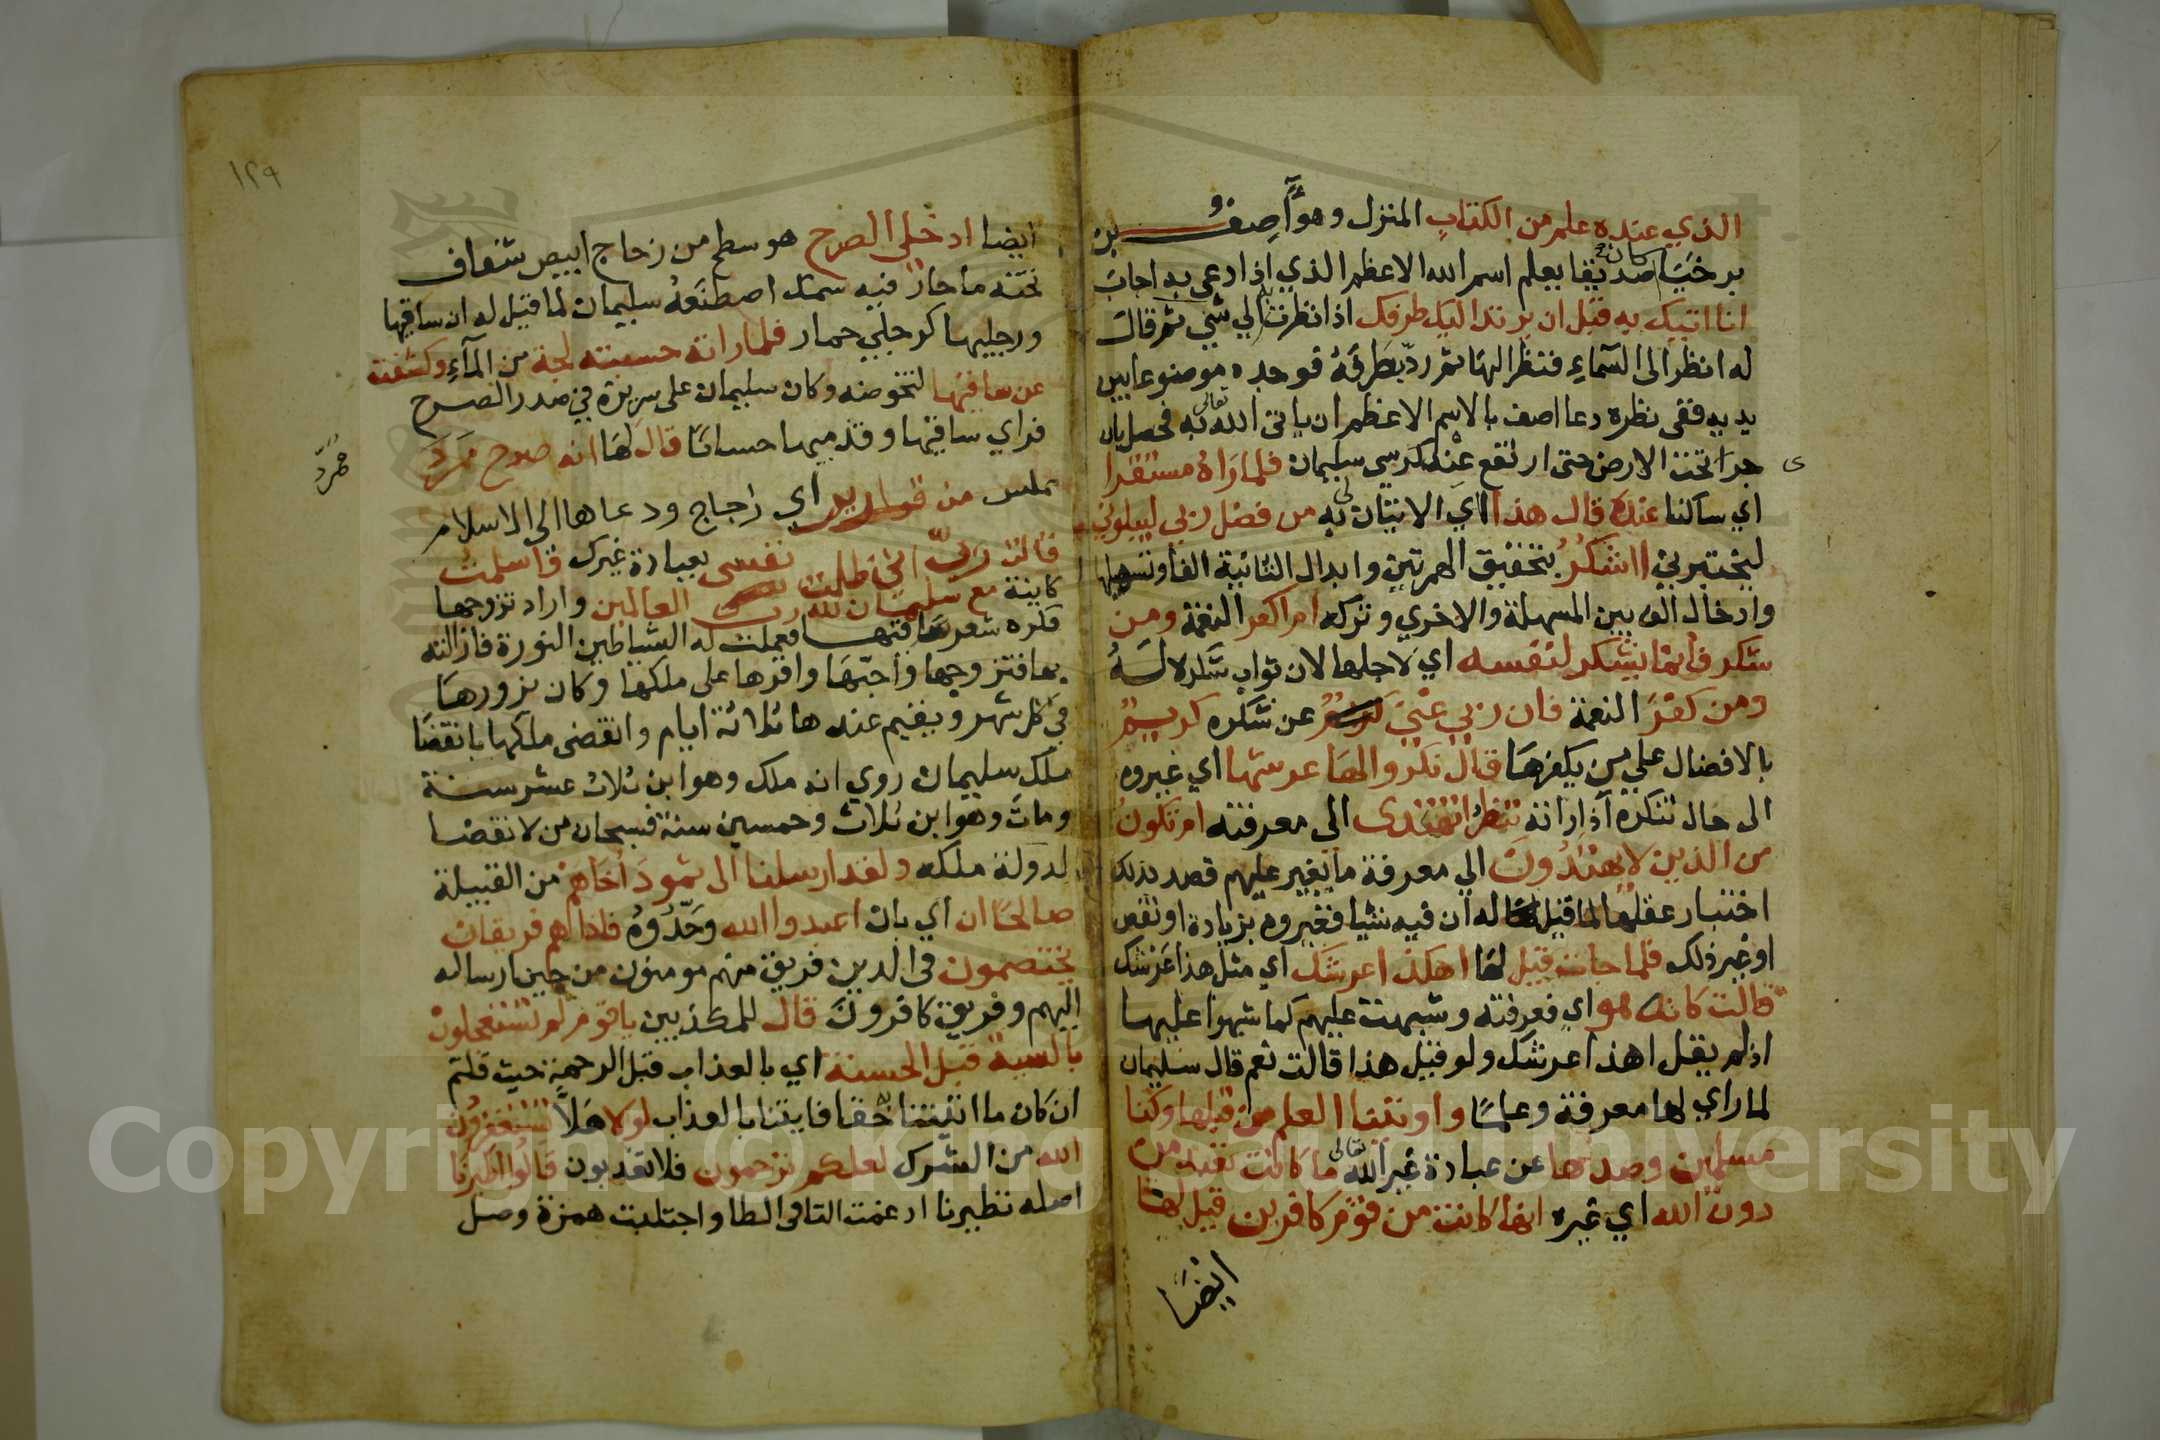 الذي عنده علم من الكتاب المنزل وهو آصف بن
برخيا كان صديقا يعلم اسم الله الاعظم الذي اذا دعي به اجاب
انا اتيك به قبل ان يرتد اليك طرفك اذا نظرت الي شي ثم قال
له انظر الى السماء فنظر اليها ثم رد بطرفه فوجده موضوعا بين
يديه ففى نظره دعا اصف بالاسم الاعظم ان ياتى الله تعالى به فحصل بان
جرا تحت الارض حتى ارتفع عند كرسي سليمان فلما راه مستقرا
ى
اي ساكنا عنده قال هذا اي الاتيان لي به من فضل ربي ليبلوني
ليختبرني ااشكر بتحقيق الهمزتين وابدال الثانية الفا وتسهيلها
وادخال الف بين المسهلة والاخري وتركه ام اكفر النعمة ومن
شكر فانما يشكر لنفسه اي لاجلها لان ثواب شكره له
ومن كفر النعمة فان ربي غني عن شكره كريم
بالافضال علي من يكفرها قال نكروا لها عرشها اي غيروه
الى حال تنكره اذا راته ننظر اتهتدى الى معرفته ام تكون
من الذين لا يهتدون الي معرفة ما يغير عليهم قصد بذلك
اختبار عقلها لما قيل له ان فيه شيا فغيروه بزيادة او نقص
او غير ذلك فلما جات قيل لها اهكذا عرشك اي مثل هذا عرشك
قالت كانه هو اي فعرفته وشبهت عليهم كما شبهوا عليها
اذ لم يقل اهذا عرشك ولو قيل هذا قالت نعم قال سليمان
لما راي لها معرفة وعلما واوتينا العلم من قبلها وكنا
مسلمين وصدها عن عبادة غير الله تعالى ما كانت تعبد من
دون الله اي غيره انها كانت من قوم كافرين قيل لها
ايضا
١٢٩
ايضا ادخلي الصرح هو سطح من زجاج ابيض شفاف
تحته ما جار فيه سمك اصطنعه سليمان لما قيل له ان ساقيها
ورجليها كرجلي حمار فلما راته حسبته لجة من المآء وكشفت
عن ساقيها لتخوضه وكان سليمان على سريره في صدر الصرح
فراي ساقيها وقدميها حسانا قال لها انه صرح ممرد
ممرد
مملس من قوارير اي زجاج ودعاها الى الاسلام
قالت رب اني ظلمت نفسى بعبادة غيرك واسلمت
كاينة مع سليمان لله رب العالمين واراد تزوجها
فكره شعر ساقيها فعملت له الشياطين النورة فازالته
بها فتزوجها واحبها واقرها على ملكها وكان يزورها
في كل شهر ويقيم عندها ثلاثة ايام وانقضى ملكها بانقضا
ملك سليمان روي انه ملك وهو ابن ثلاث عشر سنة
ومات وهو ابن ثلاث وخمسين سنة فسبحان من لا نقضا
لدولة ملكه ولقد ارسلنا الى ثمود اخاهم من القبيلة
صالحا ان اي بان اعبدوا الله وحدوه فاذا هم فريقان
يختصمون فى الدين فريق منهم مومنون من حين ارساله
اليهم وفريق كافرون قال للمكذبين يا قوم لم تستعجلون
بالسيية قبل الحسنة اي بالعذاب قبل الرحمة حيث قلتم
ان كان ما اتيتنا به حقا فايتنا بالعذاب لولا هلا تستغفرون
الله من الشرك لعلكم ترحمون فلا تعذبون قالوا اطيرنا
اصله تطيرنا ادغمت التا فى الطا واجتلبت همزة وصل
Copyright © King Saud University